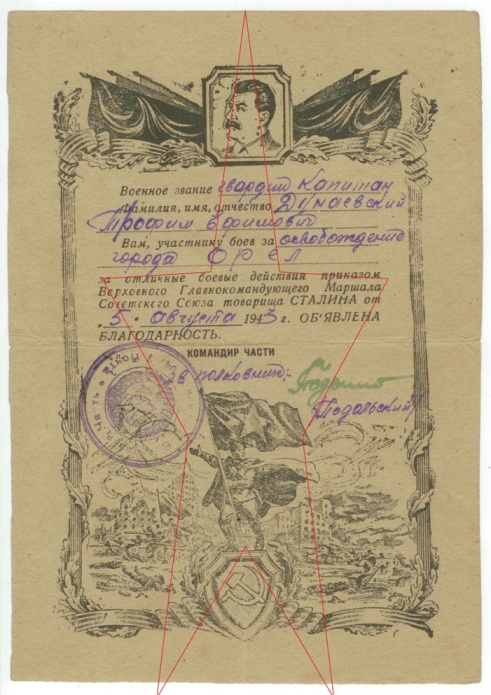 Военное звание гвардии Капитан
Фамилия, имя, отчество Дунаевский
Трофим Ефимович
Вам, участнику боев за освобождение
города Орел
за отличные боевые действия приказом
Верховного Главнокомандующего Маршала
Советского Союза товарища СТАЛИНА от
„5“ августа 1943 г. ОБ'ЯВЛЕНА
БЛАГОДАРНОСТЬ.
КОМАНДИР ЧАСТИ
гв полковник:
Подольский